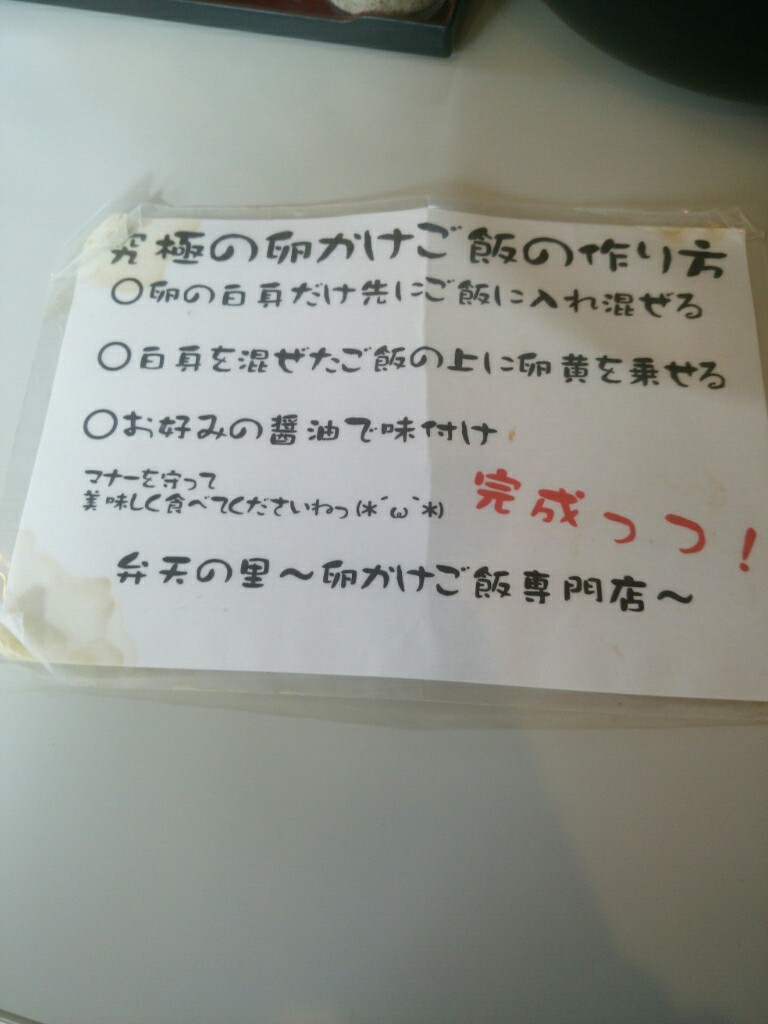 究極の卵かけご飯の作り方
〇卵の白身だけ先にご飯に入れ混ぜる
〇白身を混ぜたご飯の上に卵黄を乗せる
〇お好みの醬油で味付け
マナーを守って
美味しく食べてくださいねっ(*´ω`*)
完成っっ！
弁天の里～卵かけご飯専門店～